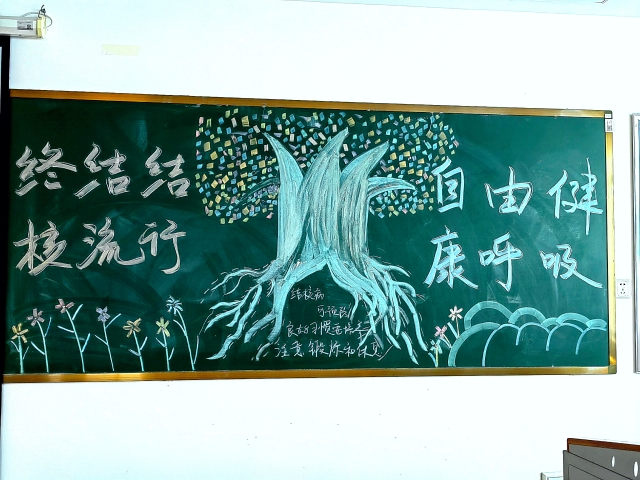 终结结
核流行
自由健
康呼吸
结核病
可预防
良好习惯
注意锻炼和休息